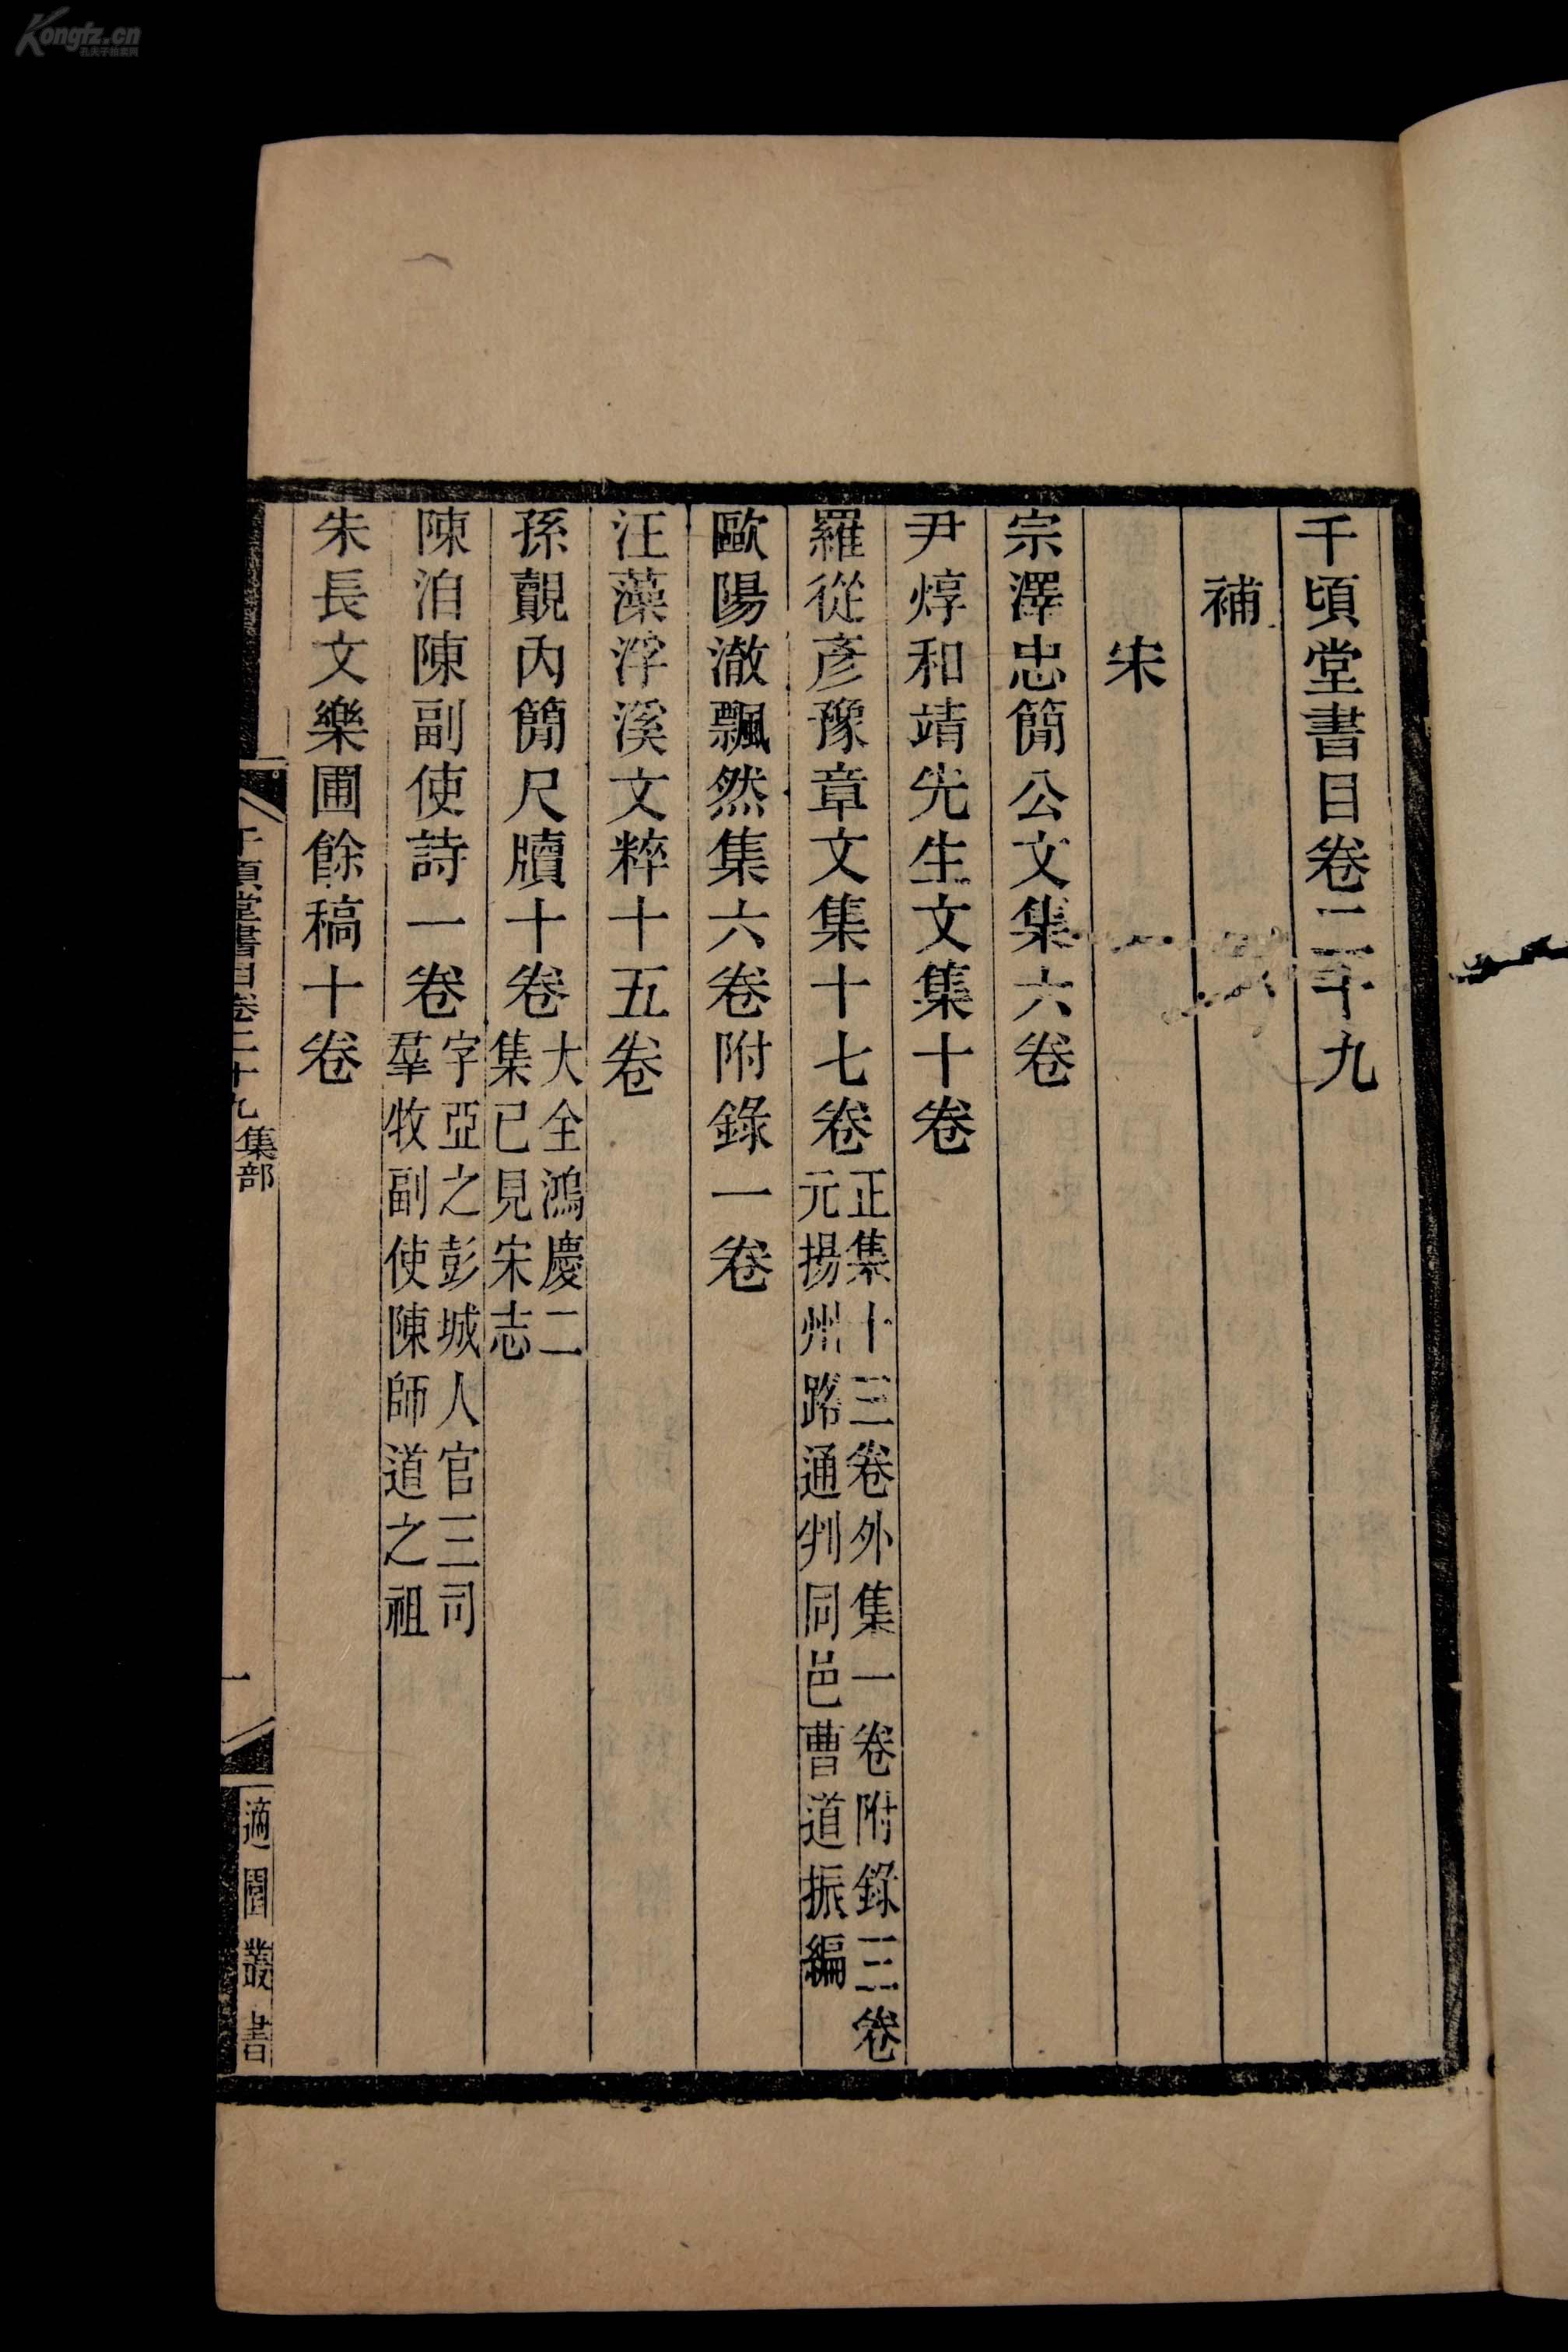 Kongfz.cn
孔夫子旧书网
千頃堂書目卷二十九
補
宋
宗澤忠簡公文集六卷
尹焞和靖先生文集十卷
羅從彥豫章文集十七卷
正集十三卷外集一卷附錄三卷
元揚州路通判同邑曹道振編
歐陽澈飄然集六卷附錄一卷
汪藻浮溪文粹十五卷
孫覿內簡尺牘十卷
大全鴻慶二
集已見宋志
陳洎陳副使詩一卷
字亞之彭城人官三司
羣牧副使陳師道之祖
朱長文樂圃餘稿十卷
千頃堂書目卷二十九
集部
一
適園叢書